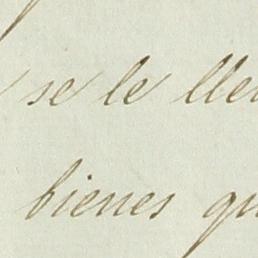 se le lle
bienes qu